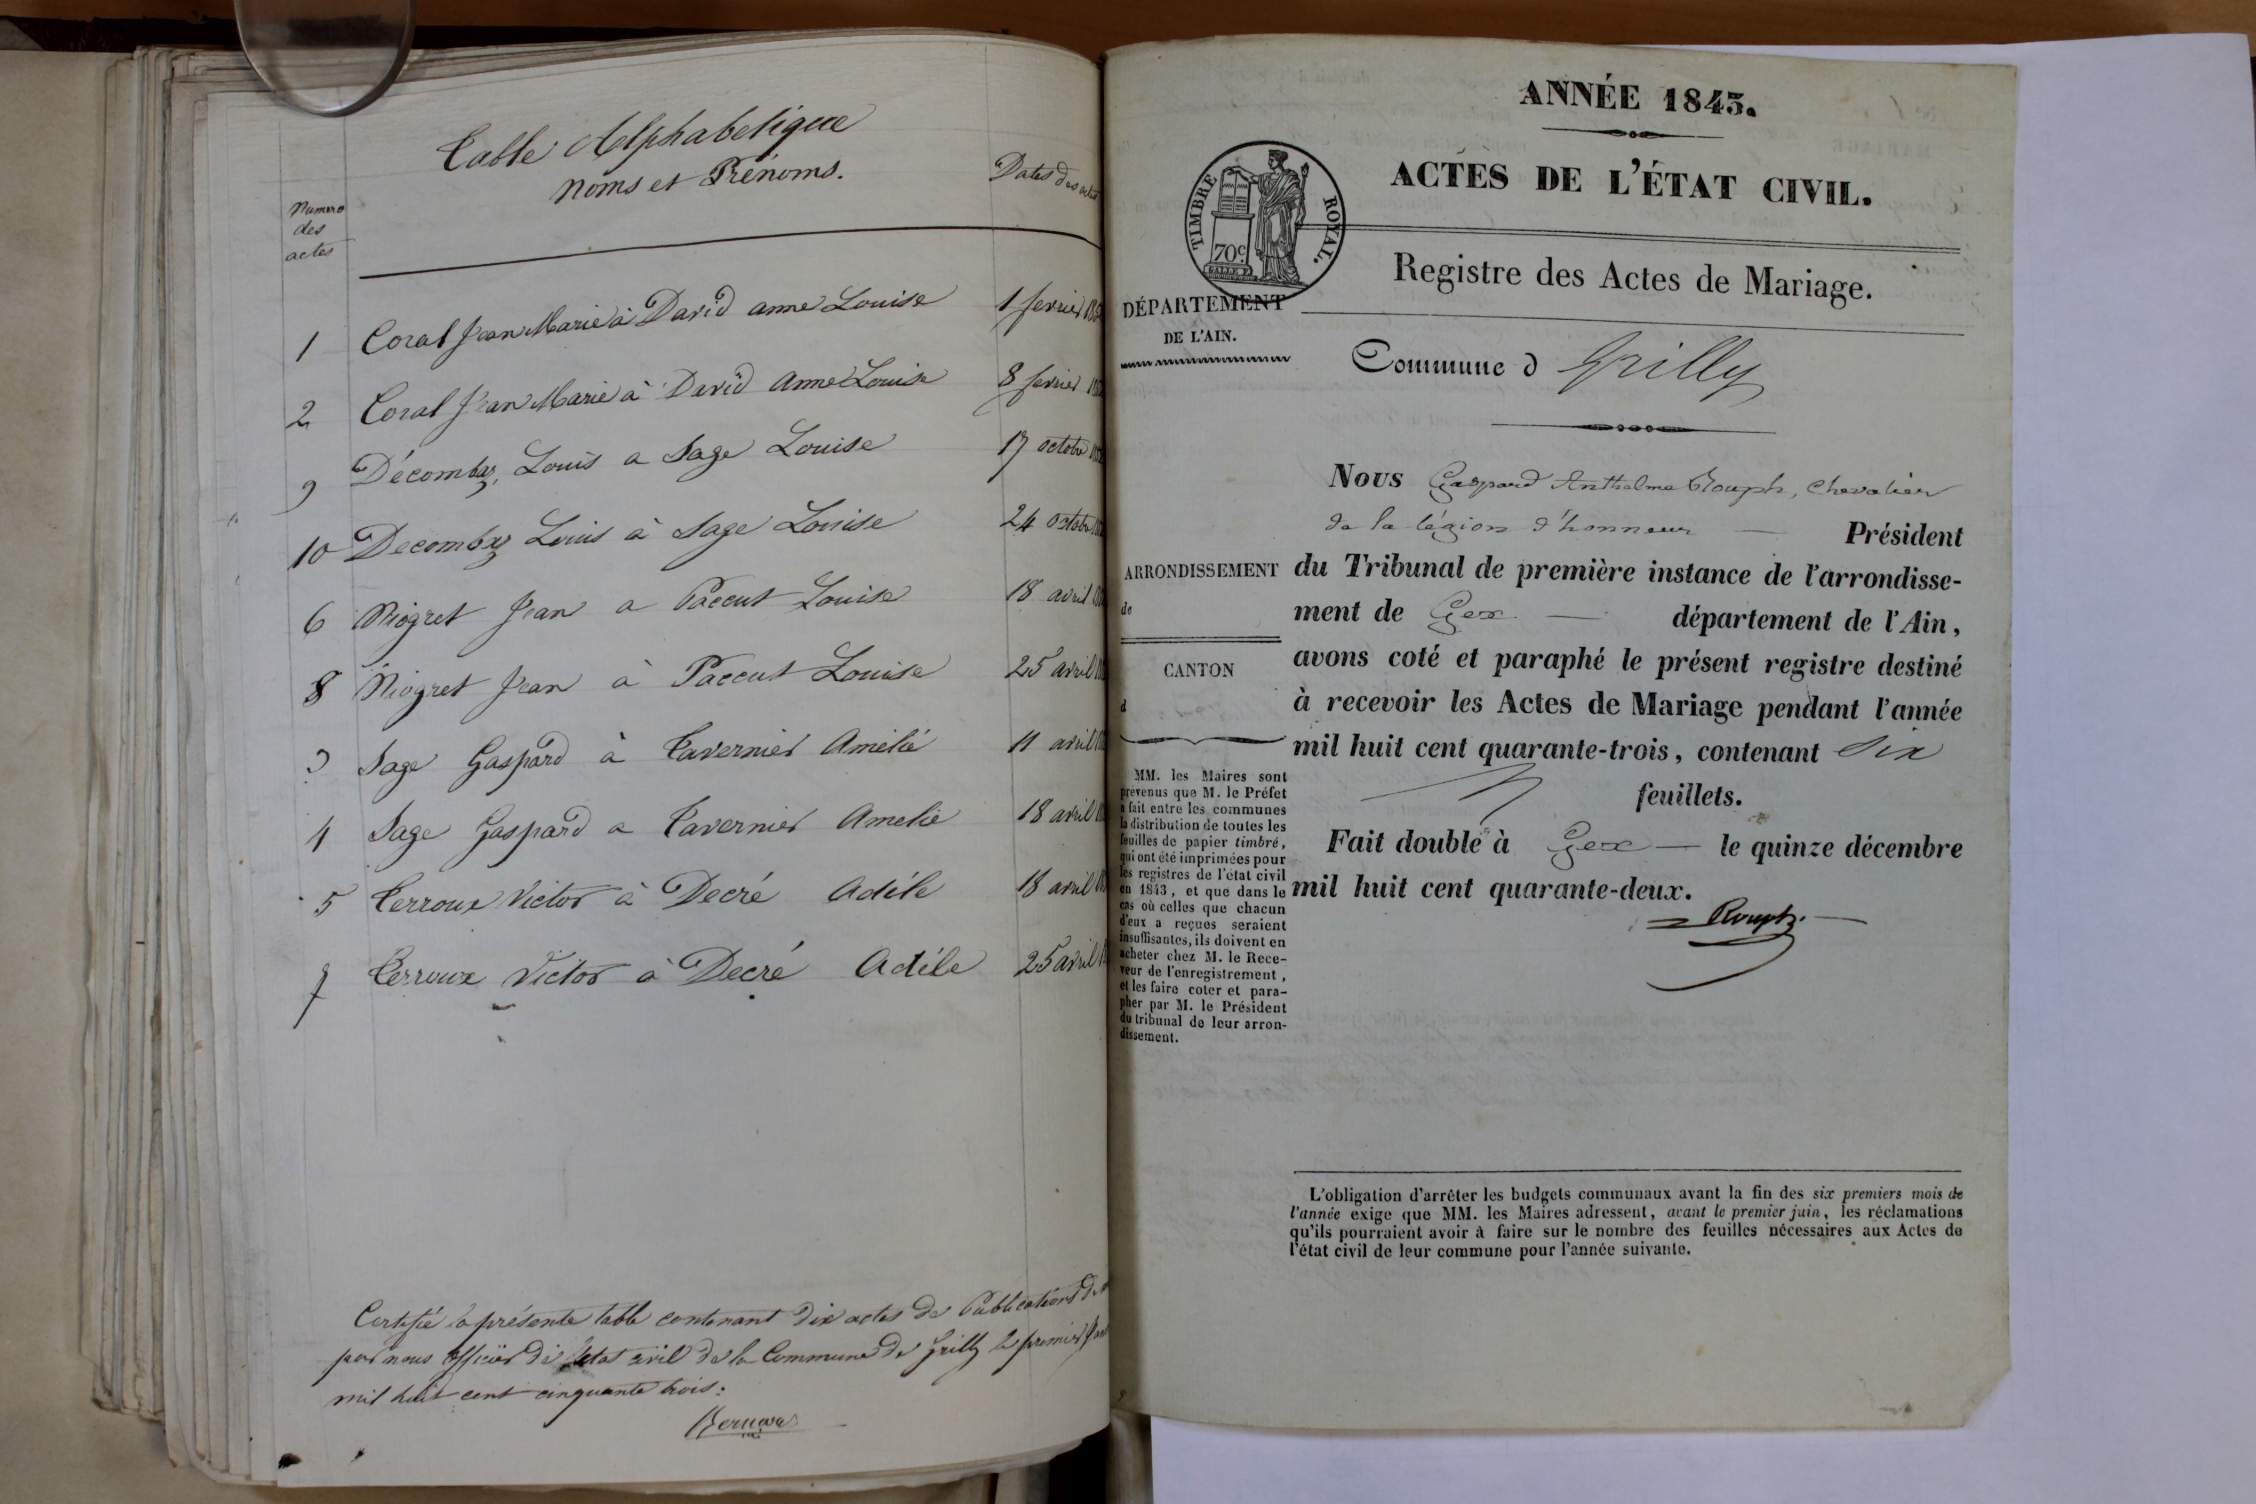 Table Alphabétique
Noms et Prénoms.
Dates des actes
Numero
des
actes
1 Coral Jean Marie à David anne Louise 1 fevrier
2 Coral Jean Marie à David Anne Louise 8 fevrier
9 Décombaz, Louis a Sage Louise 17 octobre
10 Decombaz Louis à Sage Louise 24 octobre
6 Niogret Jean a Paccut Louise 18 avril
8 Niogret Jean à Paccut Louise 25 avril
3 Sage Gaspard à Tavernier Amélie 11 avril
4 Sage Gaspard a Tavernier Amelie 18 avril
5 Terroux Victor à Decré Adéle 18 avril
7 Terroux Victor à Decré Adéle 25 avril
Certifié la présente table contenant dix actes de Publications de
par nous officier de l'état civil de la Commune de Grilly le premier
mil huit cent cinquante trois:
ANNÉE 1843.
ACTES DE L'ÉTAT CIVIL.
TIMBRE ROYAL.
70c
Registre des Actes de Mariage.
DÉPARTEMENT
DE L'AIN.
Commune d Grilly
Nous Gaspard Anthelme Rouph, Chevalier
de la légion d'honneur — Président
du Tribunal de première instance de l'arrondisse-
ment de Gex — département de l'Ain,
avons coté et paraphé le présent registre destiné
à recevoir les Actes de Mariage pendant l'année
mil huit cent quarante-trois, contenant Six
feuillets.
Fait double à Gex — le quinze décembre
mil huit cent quarante-deux.
Rouph.
ARRONDISSEMENT
de
CANTON
d
MM. les Maires sont
prévenus que M. le Préfet
a fait entre les communes
la distribution de toutes les
feuilles de papier timbré,
qui ont été imprimées pour
les registres de l'état civil
en 1843, et que dans le
cas où celles que chacun
d'eux a reçues seraient
insuffisantes, ils doivent en
acheter chez M. le Rece-
veur de l'enregistrement,
et les faire coter et para-
pher par M. le Président
du tribunal de leur arron-
dissement.
L'obligation d'arrêter les budgets communaux avant la fin des six premiers mois de
l'année exige que MM. les Maires adressent, avant le premier juin, les réclamations
qu'ils pourraient avoir à faire sur le nombre des feuilles nécessaires aux Actes de
l'état civil de leur commune pour l'année suivante.